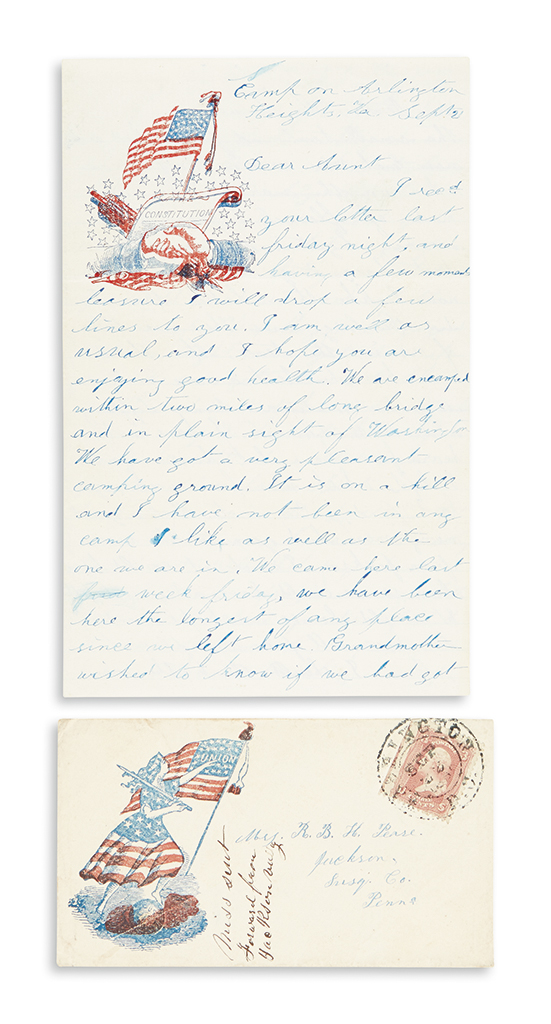 Camp on Arlington
Heights, Va. Sept 2
Dear Aunt
CONSTITUTION
I recd
your letter last
friday night, and
having a few moments
leasure I will drop a few
lines to you. I am well as
usual, and I hope you are
enjoying good health. We are encamped
within two miles of long bridge
and in plain sight of Washington
We have got a very pleasant
camping ground. It is on a hill
and I have not been in any
camp I like as well as the
one we are in. We came here last
week friday, we have been
here the longest of any place
since we left home. Grandmother
wished to know if we had got
UNION
SEP
Miss sent
Forward from
Jackson
R. B. H.
Jackson.
Susq. Co.
Penna